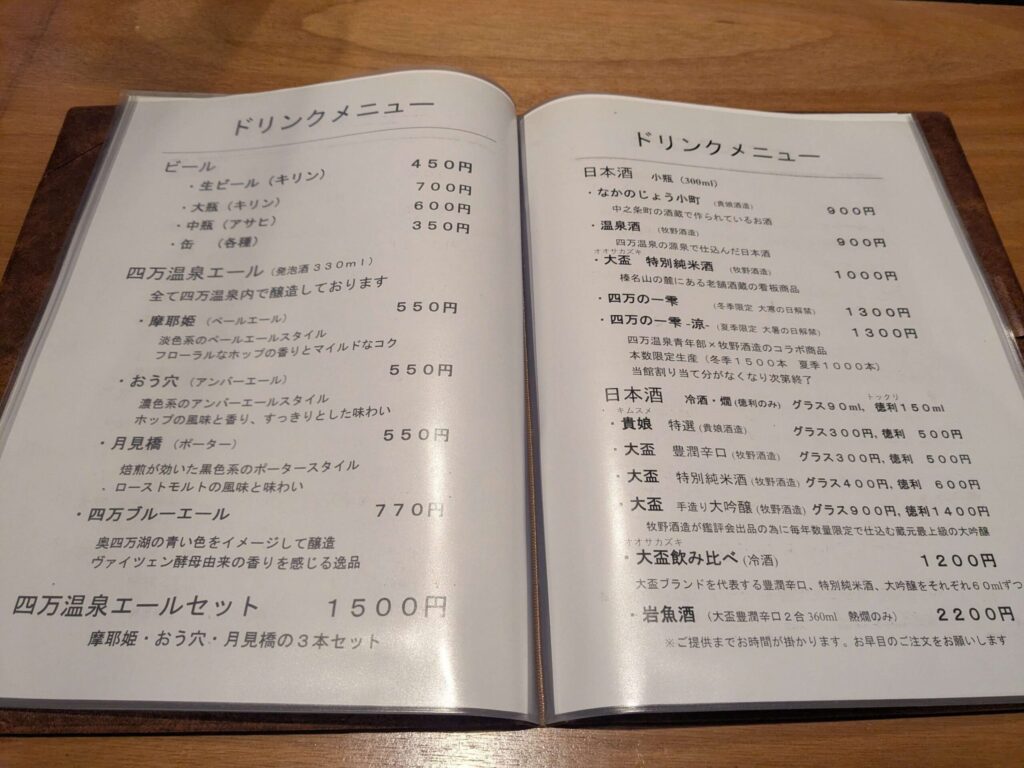 ドリンクメニュー
ビール
・生ビール（キリン） 450円
・大瓶（キリン） 700円
・中瓶（アサヒ） 600円
・缶 （各種） 350円
四万温泉エール（発泡酒330ml）
全て四万温泉内で醸造しております
・摩耶姫 （ペールエール） 550円
淡色系のペールエールスタイル
フローラルなホップの香りとマイルドなコク
・おう穴 （アンバーエール） 550円
濃色系のアンバーエールスタイル
ホップの風味と香り、すっきりとした味わい
・月見橋 （ポーター） 550円
焙煎が効いた黒色系のポータースタイル
．ローストモルトの風味と味わい
・四万ブルーエール 770円
奥四万湖の青い色をイメージして醸造
ヴァイツェン酵母由来の香りを感じる逸品
四万温泉エールセット 1500円
摩耶姫・おう穴・月見橋の3本セット
ドリンクメニュー
日本酒 小瓶（300ml）
・なかのじょう小町 （貴娘酒造） 900円
中之条町の酒蔵で作られているお酒
・温泉酒 （牧野酒造） 900円
四万温泉の源泉で仕込んだ日本酒
オオサカズキ
・大盃 特別純米酒 （牧野酒造） 1000円
榛名山の麓にある老舗酒蔵の看板商品
・四万の一雫 （冬季限定 大寒の日解禁） 1300円
・四万の一雫 -涼- （夏季限定 大暑の日解禁） 1300円
四万温泉青年部×牧野酒造のコラボ商品
本数限定生産（冬季1500本 夏季1000本）
当館割り当て分がなくなり次第終了
トックリ
日本酒 冷酒・燗(徳利のみ) グラス90ml、徳利150ml
キムスメ
・貴娘 特選（貴娘酒造） グラス300円,徳利 500円
・大盃 豊潤辛口（牧野酒造） グラス300円,徳利 500円
・大盃 特別純米酒（牧野酒造）グラス400円,徳利 600円
・大盃 手造り大吟醸（牧野酒造）グラス900円,徳利1400円
牧野酒造が鑑評会出品の為に毎年数量限定で仕込む蔵元最上級の大吟醸
オオサカズキ
・大盃飲み比べ（冷酒） 1200円
大盃ブランドを代表する豊潤辛口、特別純米酒、大吟醸をそれぞれ60mlずつ
・岩魚酒 （大盃豊潤辛口2合360ml 熱燗のみ） 2200円
※ご提供までお時間が掛かります。お早目のご注文をお願いします